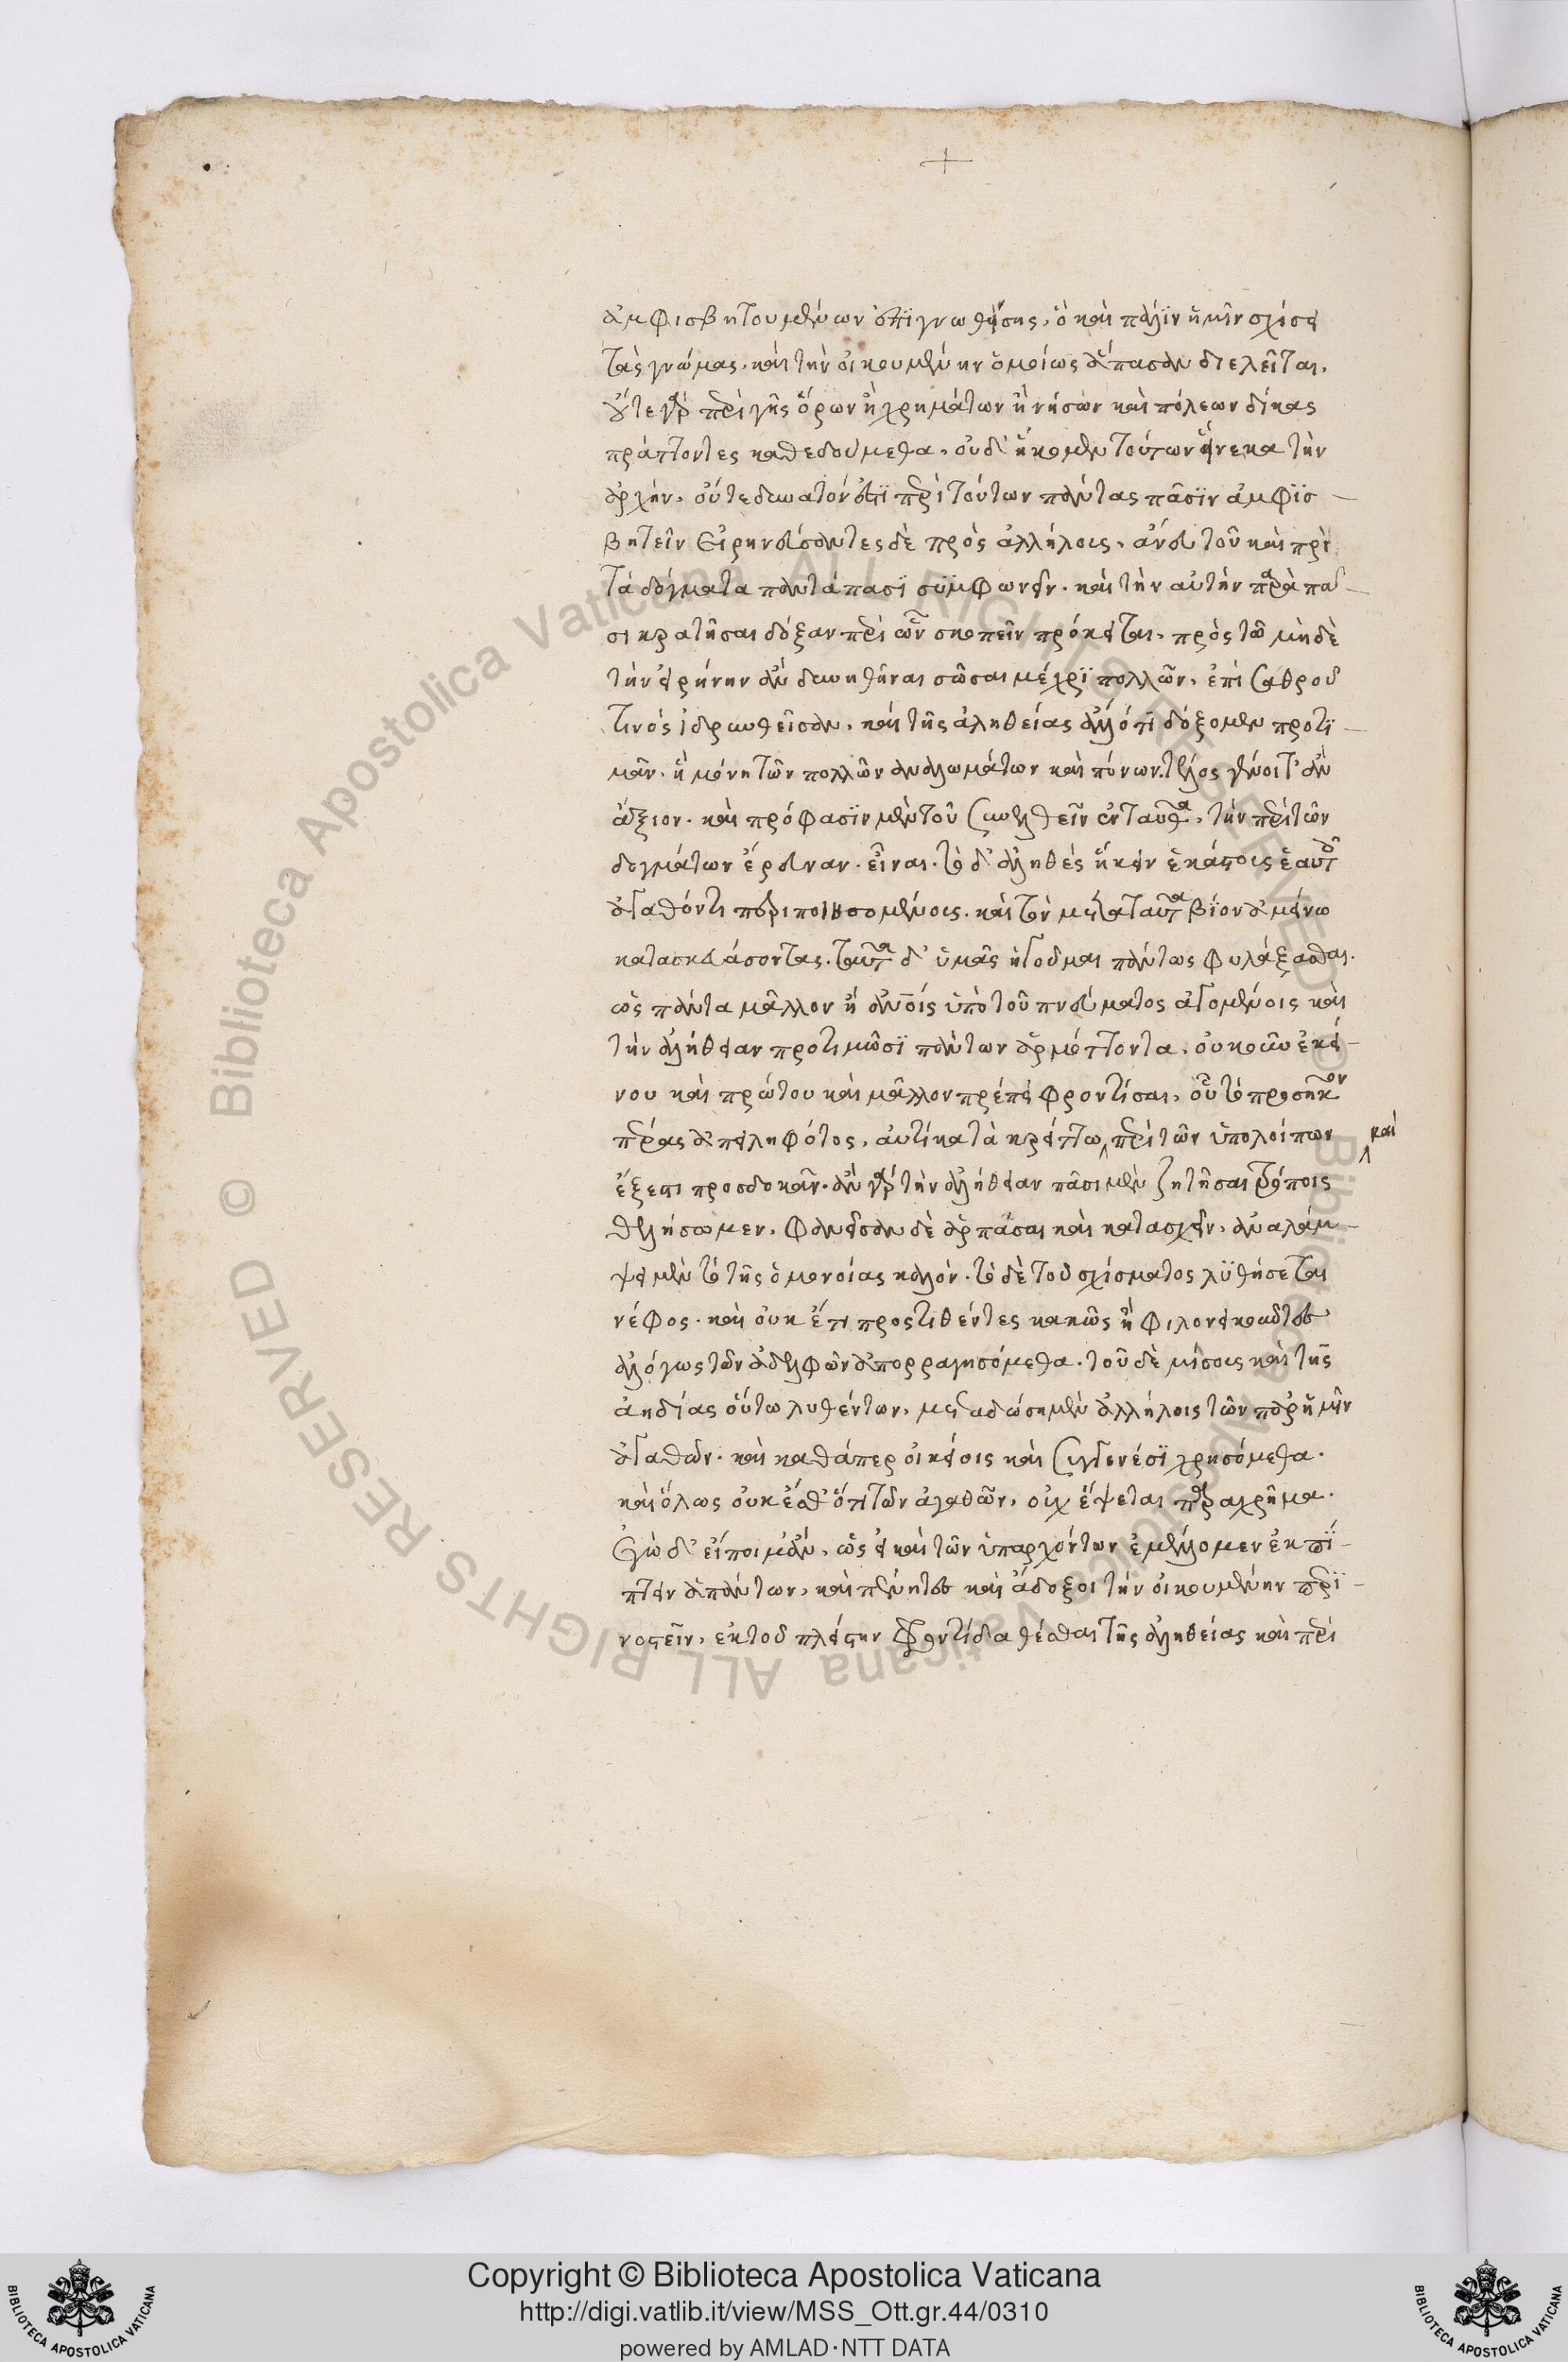 ἀμφισβητουμένων ἔτι γνωσθείσης, ὃ καὶ πάλιν ἡμῖν σχίσει
τὰς γνώμας, καὶ τὴν οἰκουμένην ὁμοίως ἅπασαν διελεῖται.
οὔτε γὰρ περὶ γῆς ὅρων ἢ χρημάτων ἢ νήσων καὶ πόλεων δίκας
πράττοντες καθεδούμεθα, οὐδ' ἥκομεν τούτων ἕνεκα τὴν
ἀρχήν, οὔτε δυνατόν ἐστι περὶ τούτων πάντας πᾶσιν ἀμφισ-
βητεῖν εἰρηνεύσαντες δὲ πρὸς ἀλλήλους, ἄνευ τοῦ καὶ περὶ
τὰ δόγματα παντάπασι συμφωνεῖν, καὶ τὴν αὐτὴν παρὰ πᾶ-
σι κρατῆσαι δόξαν περὶ ὧν σκοπεῖν πρόκειται, πρὸς τῷ μηδὲ
τὴν εἰρήνην ἂν δυνηθῆναι σῶσαι μέχρι πολλῶν, ἐπὶ σαθροῦ
τινος ἱδρυθεῖσαν, καὶ τῆς ἀληθείας ἀλλ' ὅτι δόξομεν προτι-
μᾶν, ἣ μόνη τῶν πολλῶν ἀναλωμάτων καὶ πόνων τέλος γένοιτ' ἂν
ἄξιον. καὶ πρόφασιν μὲν τοῦ συνελθεῖν ἐνταῦθα, τὴν περὶ τῶν
δογμάτων ἔρευναν εἶναι. τὸ δ' ἀληθὲς ἥκειν ἑκάστοις ἑαυτῷ
ἀγαθόν τι περιποιησομένοις, καὶ τὸν μετὰ ταῦτα βίον ἀμείνω
κατασκευάσοντας. ταῦτα δ' ὑμᾶς ἡγοῦμαι πάντως φυλάξασθαι.
ὡς πάντα μᾶλλον ἢ ἀνθρώποις ὑπὸ τοῦ πνεύματος ἀγομένοις καὶ
τὴν ἀλήθειαν προτιμῶσι πάντων ἁρμόττοντα, οὐκοῦν ἐκεί-
νου καὶ πρώτου καὶ μᾶλλον πρέπει φροντίσαι, οὗ τὸ προσῆκον
πέρας ἀπειληφότος, αὐτίκα τὰ κρείττω καὶ περὶ τῶν ὑπολοίπων
ἔξεστι προσδοκᾶν. ἂν γὰρ τὴν ἀλήθειαν πᾶσι μὲν ζητῆσαι τρόποις
θελήσωμεν, φανεῖσαν δὲ ἁρπάσαι καὶ κατασχεῖν, ἀναλάμ-
ψει μὲν τὸ τῆς ὁμονοίας καλόν. τὸ δὲ τοῦ σχίσματος λυθήσεται
νέφος. καὶ οὐκ ἔτι προστιθέντες κακῶς ἢ φιλονεικοῦντες
ἀλόγως τῶν ἀδελφῶν ἀπορραγησόμεθα. τοῦ δὲ μίσους καὶ τῆς
ἀηδίας οὕτω λυθέντων, μεταδώσημεν ἀλλήλοις τῶν παρ' ἡμῖν
ἀγαθῶν. καὶ καθάπερ οἰκείοις καὶ συγγενέσι χρησόμεθα.
καὶ ὅλως οὐκ ἔσθ' ὅτι τῶν ἀγαθῶν, οὐχ ἕψεται παραχρῆμα.
Ἐγὼ δ' εἴποιμ' ἂν, ὡς εἰ καὶ τῶν ὑπαρχόντων ἐμέλλομεν ἐκπί-
πτειν ἁπάντων, καὶ πένητες καὶ ἄδοξοι τὴν οἰκουμένην περι-
νοστεῖν, ἐκ τοῦ πλείστην φροντίδα θέσθαι τῆς ἀληθείας καὶ περὶ
Copyright © Biblioteca Apostolica Vaticana
http://digi.vatlib.it/view/MSS_Ott.gr.44/0310
powered by AMLAD·NTT DATA